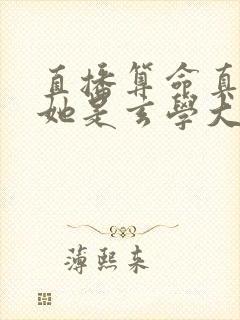 直播算命真
她是玄學大
薄熙来